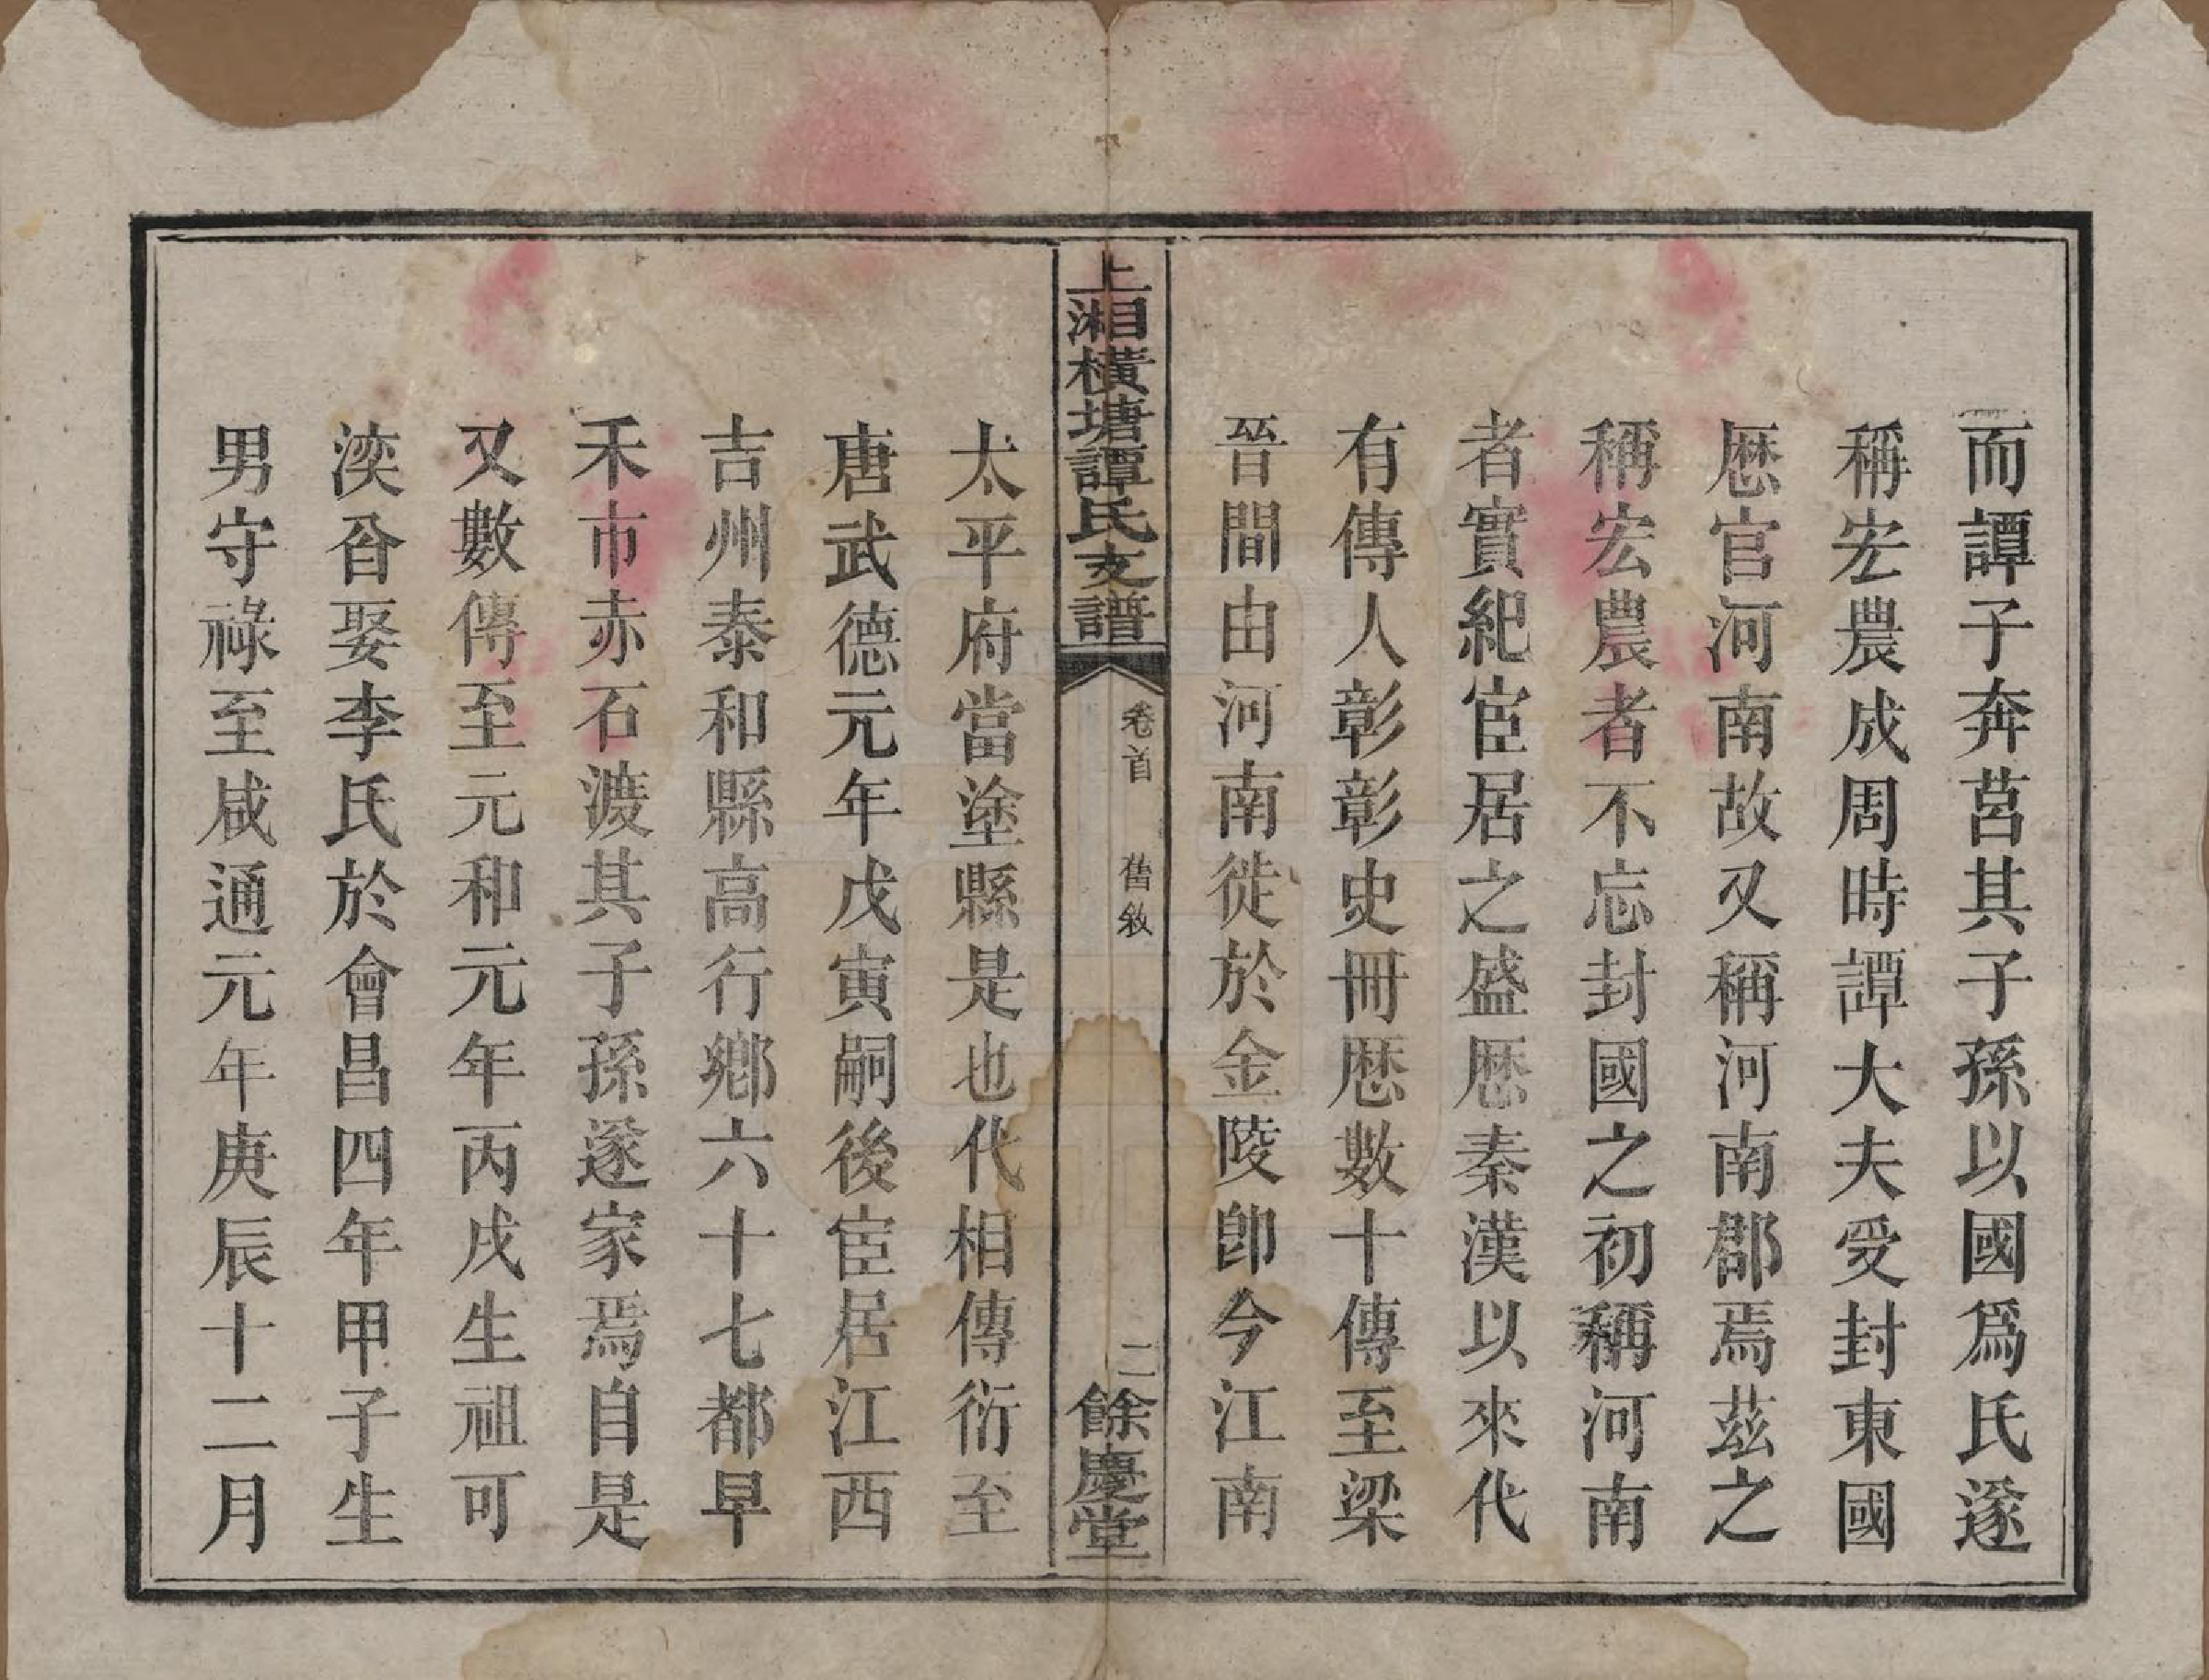 而譚子奔莒其子孫以國爲氏遂
稱宏農成周時譚大夫受封東國
歴官河南故又稱河南郡焉茲之
稱宏農者不忘封國之初稱河南
者實紀宦居之盛歴秦漢以來代
有傳人彰彰史冊歴數十傳至梁
晉間由河南徙於金陵卽今江南
上湘橫塘譚氏支譜
卷首 舊敘
二
餘慶堂
太平府當塗縣是也代相傳衍至
唐武德元年戊寅嗣後宦居江西
吉州泰和縣高行鄉六十七都早
禾市赤石渡其子孫遂家焉自是
又數傳至元和元年丙戌生祖可
湙㕣娶李氏於會昌四年甲子生
男守祿至咸通元年庚辰十二月